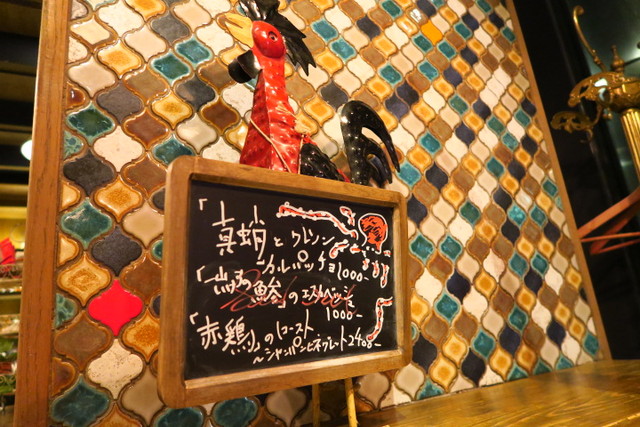 「真蛸とクレソン
カルパッチョ 1000-
「の鯵」のエスカベッシュ
1000-
「赤鶏」のロースト
～シャンパンビネブレート 2400-